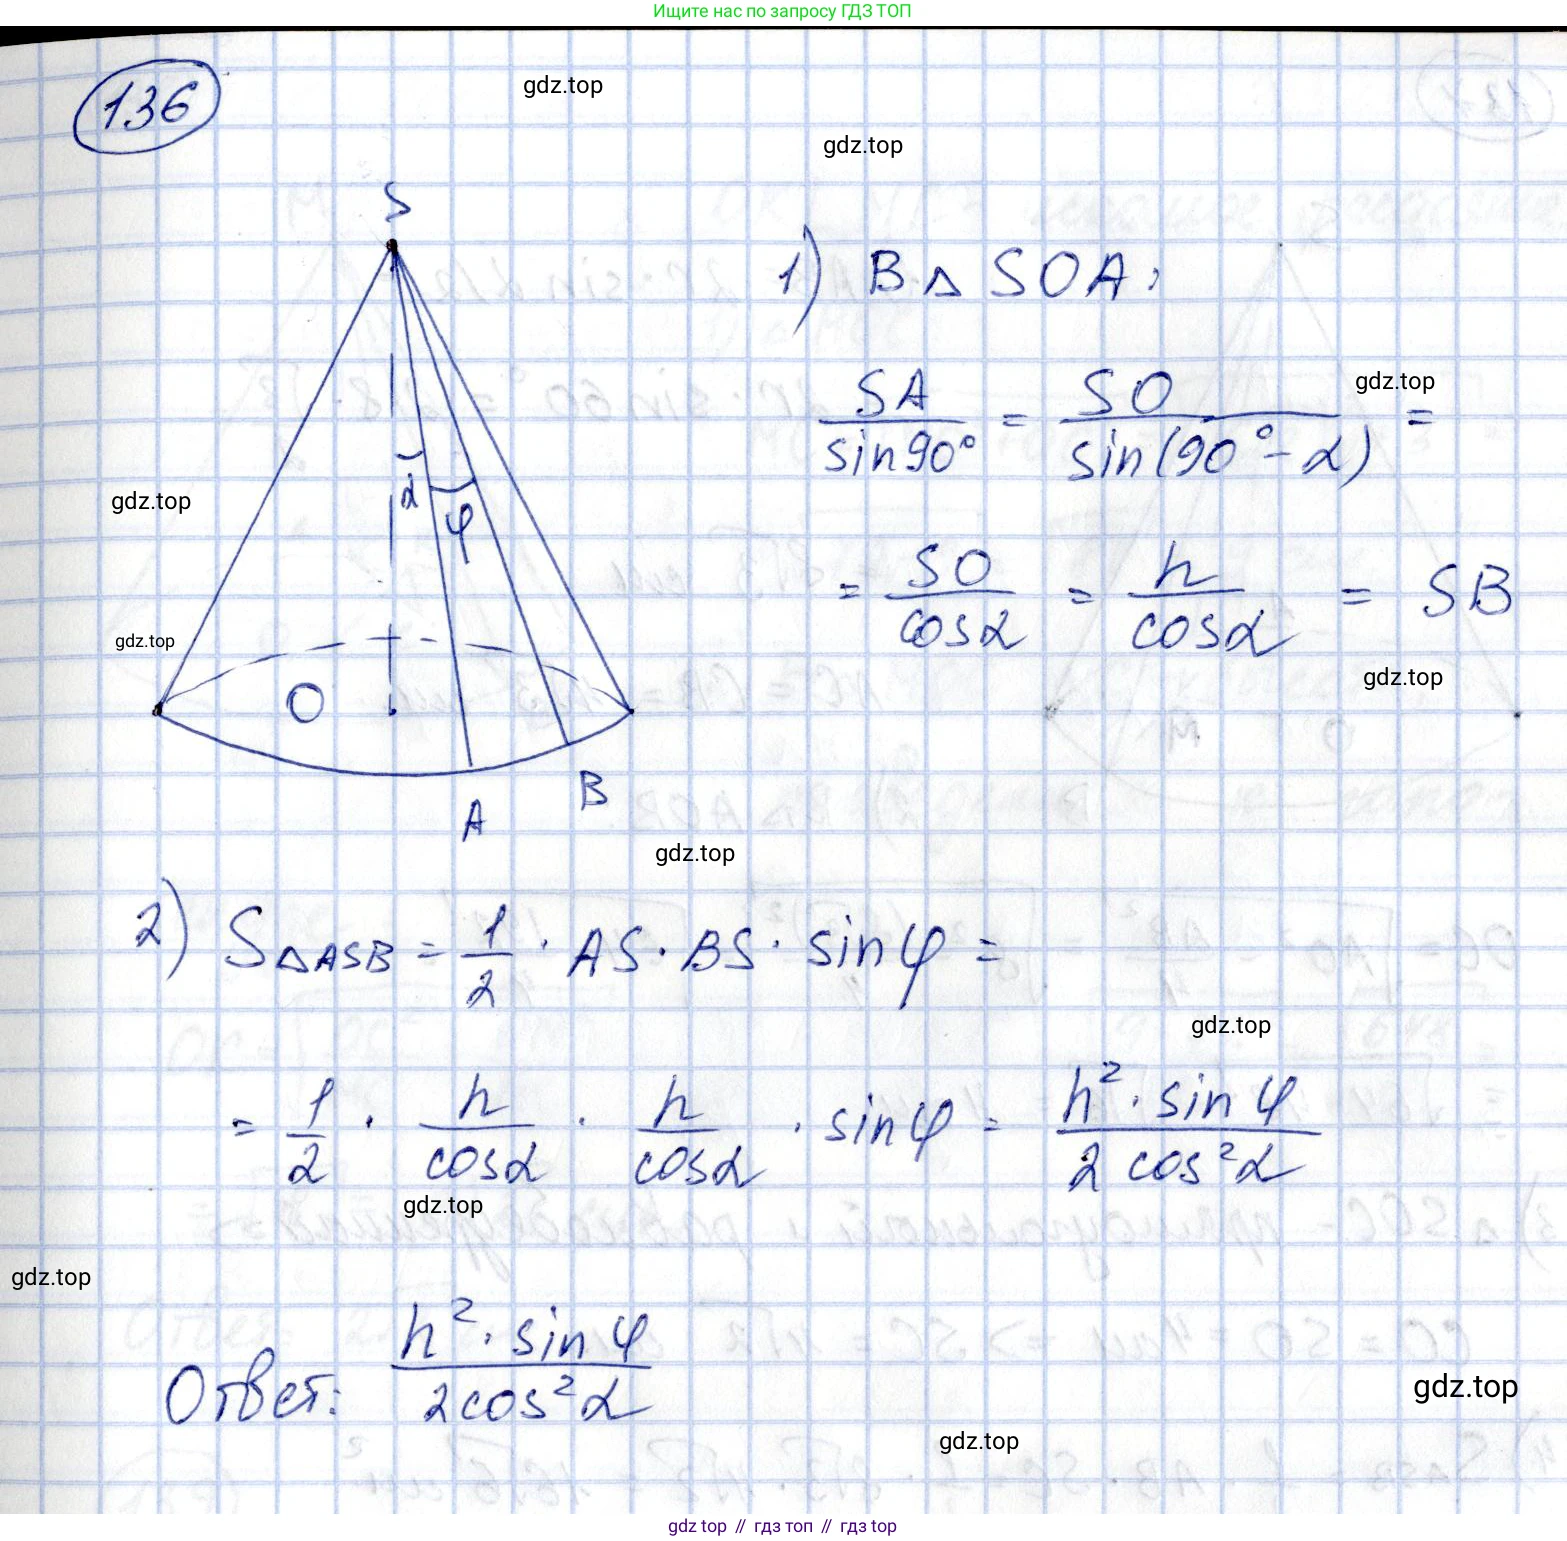 Ищите нас по запросу ГДЗ ТОП
136
gdz.top
gdz.top
S
1) В △ SOA:
SA / sin90° = SO / sin(90°-α) =
gdz.top
gdz.top
α
φ
= SO / cosα = h / cosα = SB
gdz.top
gdz.top
O
A
B
gdz.top
2) S△ASB = 1/2 · AS · BS · sinφ =
gdz.top
= 1/2 · h / cosα · h / cosα · sinφ = h² · sinφ / 2 cos²α
gdz.top
gdz.top
Ответ: h² · sinφ / 2cos²α
gdz.top
gdz.top
gdz top // гдз топ // гдз top